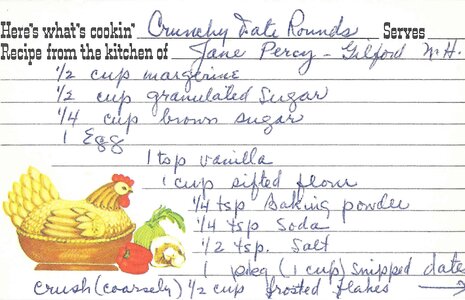 Here's what's cookin' Crunchy Date Rounds Serves
Recipe from the kitchen of Jane Percy - Gilford N.H.
1/2 cup margerine
1/2 cup granulated Sugar
1/4 cup brown sugar
1 Egg
1 tsp vanilla
1 cup sifted flour
1/4 tsp Baking powder
1/4 tsp Soda
1/2 tsp. Salt
1 pkg (1 cup) snipped dates
crush (coarsely) 1/2 cup frosted flakes →